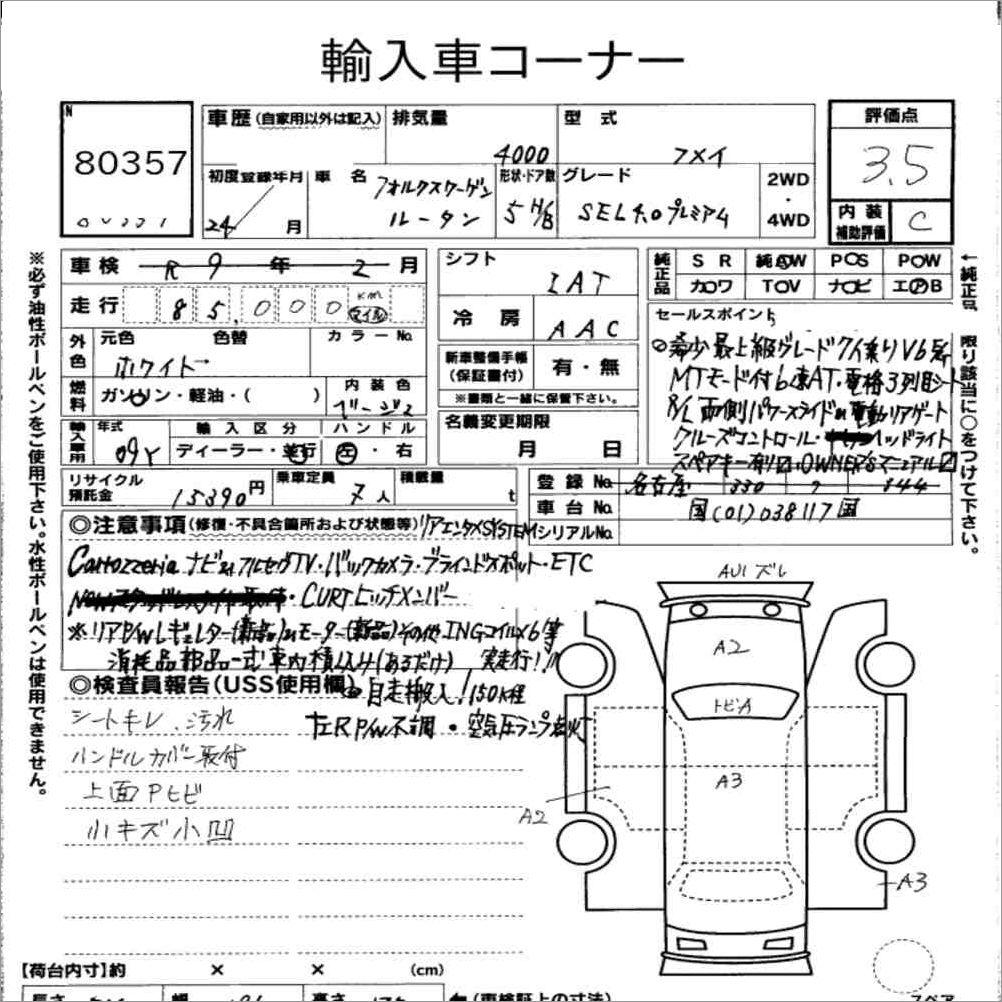 輸入車コーナー
N
80357
車歴 (自家用以外は記入)
排気量 4000
型式 フメイ
評価点 3.5
内装補助評価 C
初度登録年月 24/ 月
車名 フォルクスワーゲン ルータン
形状・ドア数 5 H/B
グレード SEL 4.0 プレミアム
2WD・4WD
※必ず油性ボールペンをご使用下さい。水性ボールペンは使用できません。
車検 R 9 年 2 月
走行 85,000 km マイル
外色 元色 色替 カラーNo.
ホワイト
燃料 ガソリン・軽油・( )
内装色 ベージュ
輸入車用 年式 09y
輸入区分 ディーラー・並行
ハンドル 左・右
リサイクル預託金 15390円
乗車定員 7人
積載量 t
シフト IAT
冷房 AAC
新車整備手帳(保証書付) 有・無
※書類と一緒に保管下さい。
名義変更期限
月 日
純正品 SR 純AW PS PW
カワ TV ナビ エアB
←純正品 限り該当に○をつけて下さい。
セールスポイント
◎希少最上級グレード 7人乗り V6
MTモード付6速AT・電格3列目シート
R/L 両側パワースライドドア 電動リアゲート
クルーズコントロール・ ヘッドライト
スペアキー有り OWNER'Sマニュアル
登録No. 名古屋 330 844
車台No. 国(01)038117国
シリアルNo.
◎注意事項 (修復・不具合箇所および状態等) リアエンタメSYSTEM
Carrozzeria ナビ フルセグTV・バックカメラ・ブラインドスポット・ETC
・CURTヒッチメンバー
※リアP/Wレギュレター(新品) モーター(新品) その他 INGコイルX6等
消耗品部品一式車内積込み(あるだけ) 実走行!!
◎検査員報告 (USS使用欄) 自走搬入!150K程
シートキレ、汚れ
左RP/W不調・空気圧ランプ点灯
ハンドルカバー取付
上面Pヒビ
小キズ小凹
AU1 ズレ
A2
トビA
A3
A2
A3
【荷台内寸】約 × × (cm)
長さ 幅 高さ
←(車検証上の寸法)
スペア